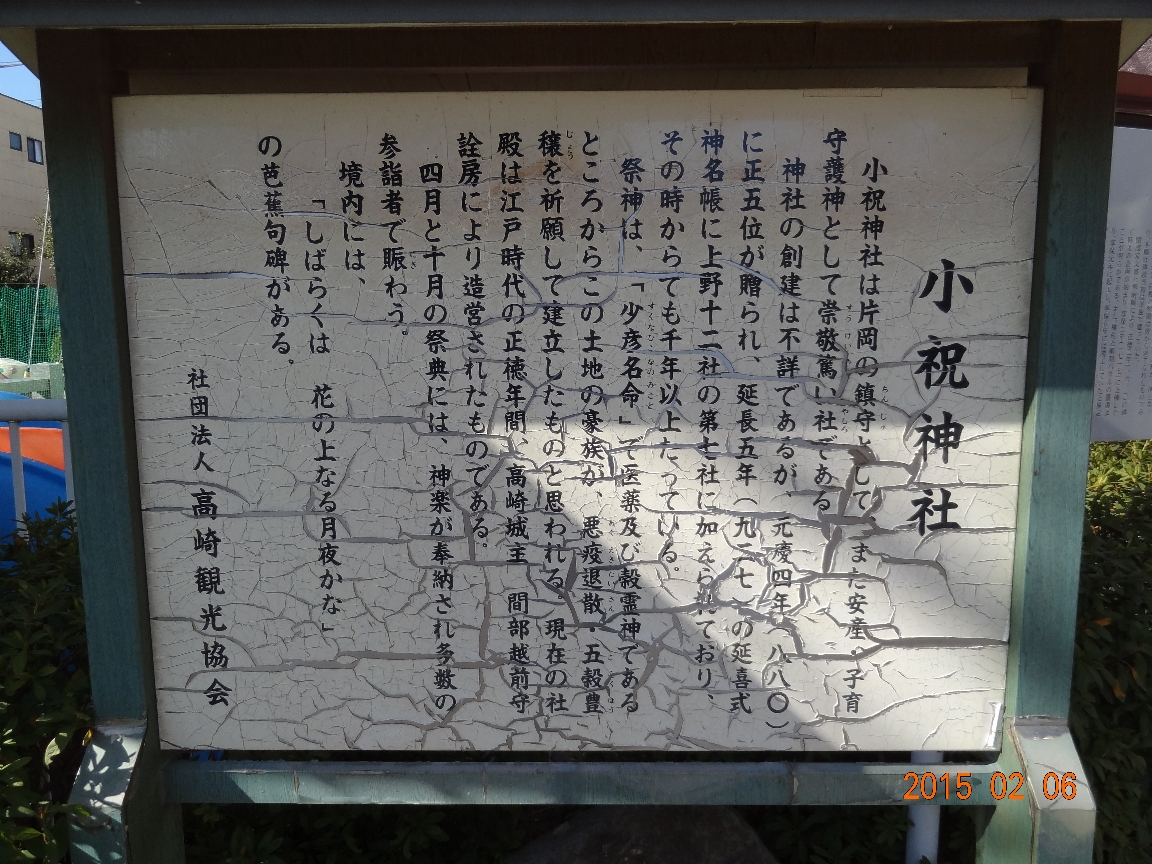 小祝神社
小祝神社は片岡の鎮守として、また安産・子育
守護神として崇敬篤い社である
神社の創建は不詳であるが、元慶四年(八八〇)
に正五位が贈られ、延長五年(九二七)の延喜式
神名帳に上野十二社の第七社に加えられており、
その時からでも千年以上たっている。
祭神は、「少彦名命」で医薬及び穀霊神である
ところからこの土地の豪族が、悪疫退散・五穀豊
穣を祈願して建立したものと思われる。現在の社
殿は江戸時代の正徳年間、高崎城主 間部越前守
詮房により造営されたものである。
四月と十月の祭典には、神楽が奉納され多数の
参詣者で賑わう。
境内には、
「しばらくは 花の上なる月夜かな」
の芭蕉句碑がある。
社団法人 高崎観光協会
2015 02 06